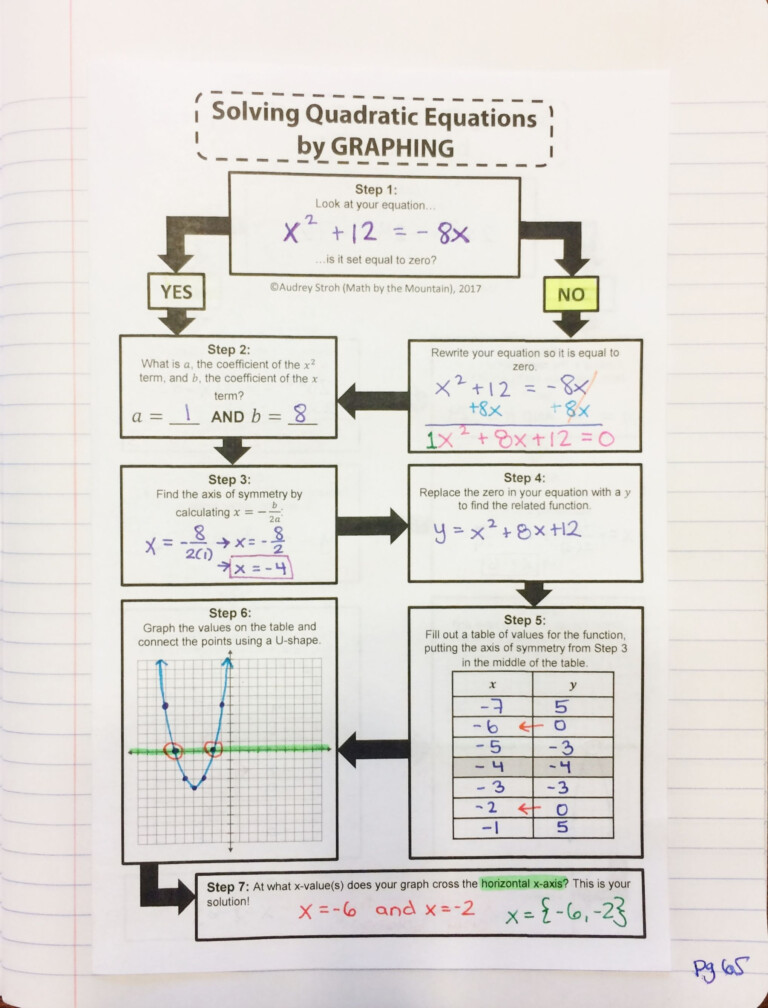 Solving Quadratic Equations
by GRAPHING
Step 1:
Look at your equation...
x² + 12 = - 8x
...is it set equal to zero?
YES
©Audrey Stroh (Math by the Mountain), 2017
NO
Step 2:
What is a, the coefficient of the x²
term, and b, the coefficient of the x
term?
a = 1 AND b = 8
Rewrite your equation so it is equal to
zero.
x² + 12 = - 8x
+8x +8x
1x² + 8x + 12 = 0
Step 3:
Find the axis of symmetry by
calculating x = - b/2a:
x = - 8/2(1) → x = - 8/2
→ x = -4
Step 4:
Replace the zero in your equation with a y
to find the related function.
y = x² + 8x + 12
Step 5:
Fill out a table of values for the function,
putting the axis of symmetry from Step 3
in the middle of the table.
x y
-7 5
-6 ← 0
-5 -3
-4 -4
-3 -3
-2 ← 0
-1 5
Step 6:
Graph the values on the table and
connect the points using a U-shape.
Step 7: At what x-value(s) does your graph cross the horizontal x-axis? This is your
solution!
x = -6 and x = -2 x = {-6, -2}
Pg 65